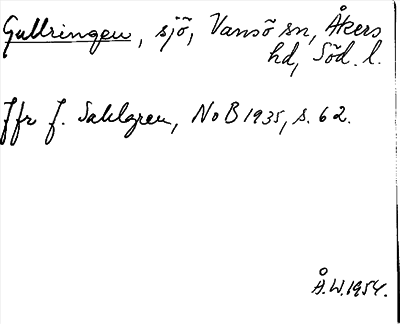 Gullringen, sjö, Vansö sn, Åkers
hd, Söd. l.
Jfr J. Sahlgren, NoB 1935, s. 62.
Å.W. 1954.